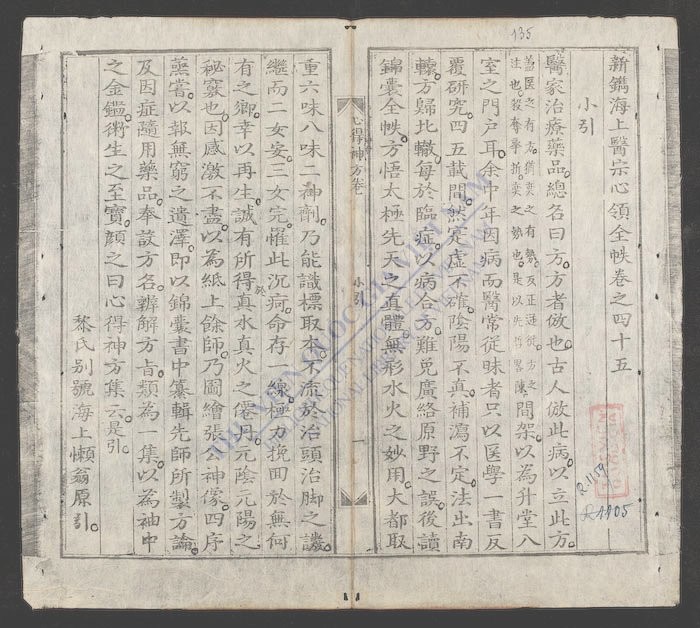 135
新鐫海上醫宗心領全帙卷之四十五
小引
醫家治療藥品總名曰方方者倣也古人倣此病以立此方
間架以為升堂入
室之門戶耳余中年因病而醫常從昧者只以医學一書反
覆研究四五載間然寔虛不確陰陽不真補瀉不定法出南
轅方歸北轍每於臨症以病合方難免廣絡原野之誤後讀
錦囊全帙方悟太極先天之真體無形水火之妙用大都取
心得神方卷七
小引
一
重六味八味二神劑乃能識標取本不流於治頭治脚之譏
繼而二女安三女完罹此沉疴命存一線極力挽回於無何
有之鄉幸以再生誠有所得真水真火之僊丹元陰元陽之
秘竅也因感激不盡以為紙上餘師乃圖繪張公神像四序
蒸嘗以報無窮之遺澤即以錦囊書中纂輯先師所製方論
及因症隨用藥品奉諸方名辨解方旨類為一集以為袖中
之金鑑衛生之至寶顏之曰心得神方集云是引
黎氏別號海上懶翁原引
R.1159
R.1105